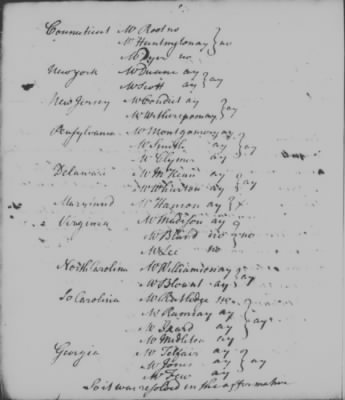 Connecticut Mr Root no
Mr Huntington ay } no
Mr Dyer no
New York Mr Duane ay } ay
Mr Scott ay
New Jersey Mr Condict ay } ay
Mr Witherspoon ay
Pensylvania Mr Montgomery ay
Mr Smith ay } ay
Mr Clymer ay
Delaware Mr McKean ay } ay
Mr Wharton ay
Maryland Mr Hanson ay } x
Virginia Mr Madison ay
Mr Bland no } no
Mr Lee no
North Carolina Mr Williamson ay } ay
Mr Blount ay
So Carolina Mr Rutledge
Mr Ramsay ay } ay
Mr Izard ay
Mr Midleton ay
Georgia Mr Telfair ay
Mr Jones ay } ay
Mr Few ay
So it was resolved in the affirmative